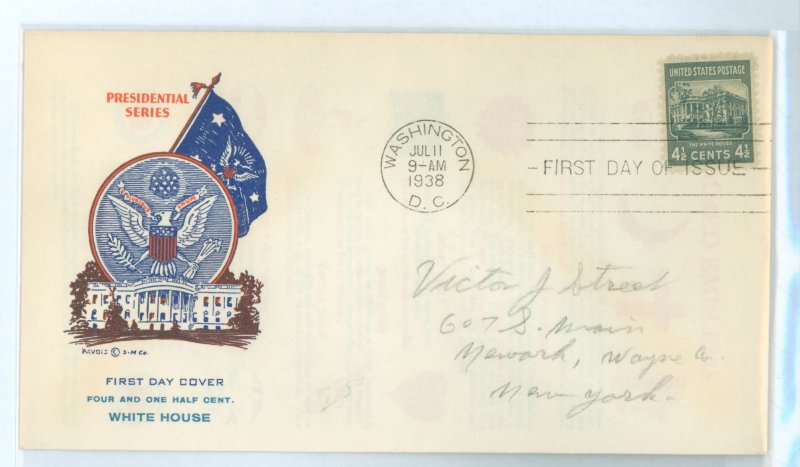 PRESIDENTIAL
SERIES
E PLURIBUS UNUM
PAVOIS © S-M Co.
FIRST DAY COVER
FOUR AND ONE HALF CENT.
WHITE HOUSE
WASHINGTON
JUL 11
9-AM
1938
D. C.
FIRST DAY OF ISSUE
UNITED STATES POSTAGE
THE WHITE HOUSE
4½ CENTS 4½
Victor J Street
607 S. Main
Newark, Wayne Co.
New York.